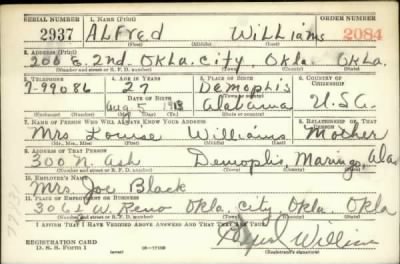 SERIAL NUMBER 1. NAME (Print) ORDER NUMBER
2937 ALFRED WILLIAMS 2084
(First) (Middle) (Last)
2. ADDRESS (Print)
200 E. 2nd. Okla. City, Okla. Okla.
(Number and street or R. F. D. number) (Town) (County) (State)
3. TELEPHONE 4. AGE IN YEARS 5. PLACE OF BIRTH 6. COUNTRY OF CITIZENSHIP
7-99086 27 Demoplis
DATE OF BIRTH (Town or county)
Aug 5 1913 Alabama U.S.A.
(Mo.) (Day) (Yr.) (State or country)
7. NAME OF PERSON WHO WILL ALWAYS KNOW YOUR ADDRESS 8. RELATIONSHIP OF THAT PERSON
Mrs. Louise Williams Mother
(Mr., Mrs., Miss) (First) (Middle) (Last)
9. ADDRESS OF THAT PERSON
300 N. Ash Demoplis, Maringo, Ala
(Number and street or R. F. D. number) (Town) (County) (State)
10. EMPLOYER'S NAME
Mrs. Joe Black
11. PLACE OF EMPLOYMENT OR BUSINESS
W. Reno Okla. City Okla. Okla
(Number and street or R. F. D. number) (Town) (County) (State)
I AFFIRM THAT I HAVE VERIFIED ABOVE ANSWERS AND THAT THEY ARE TRUE.
REGISTRATION CARD
D. S. S. Form 1 Alfred Williams
(Registrant's signature)